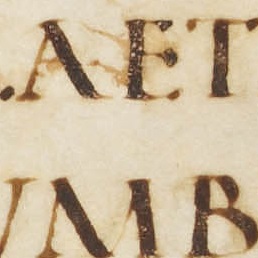 .AET
UMB